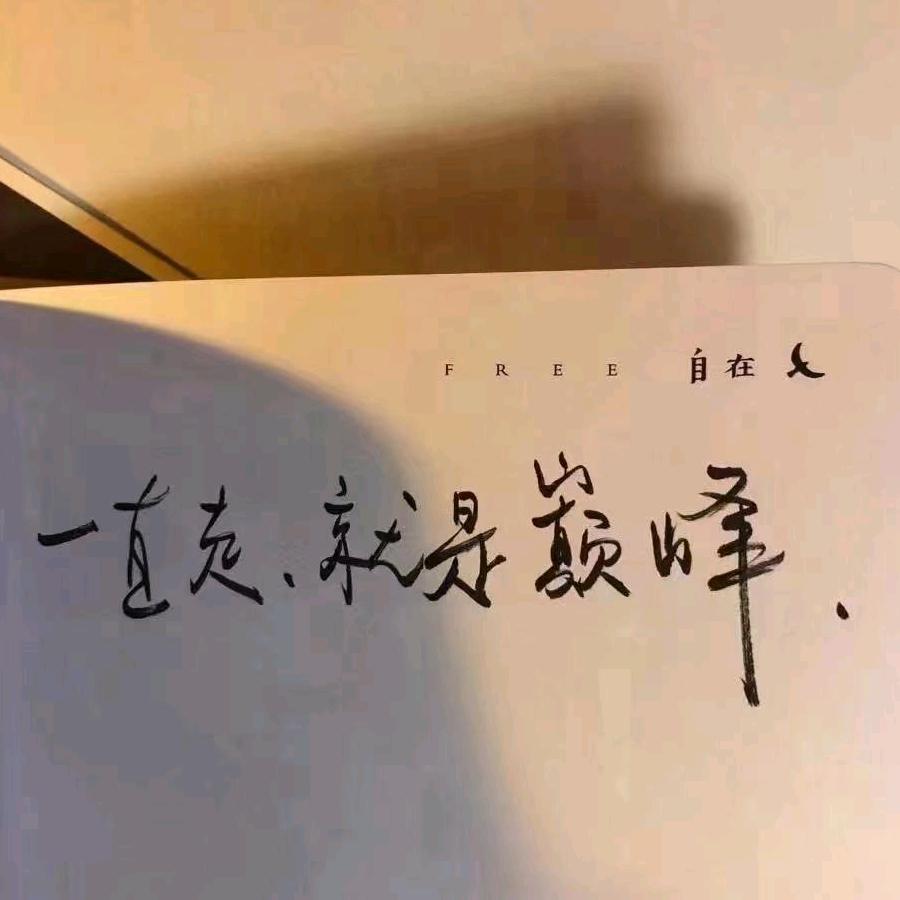 FREE 自在
一直走、就是巅峰.